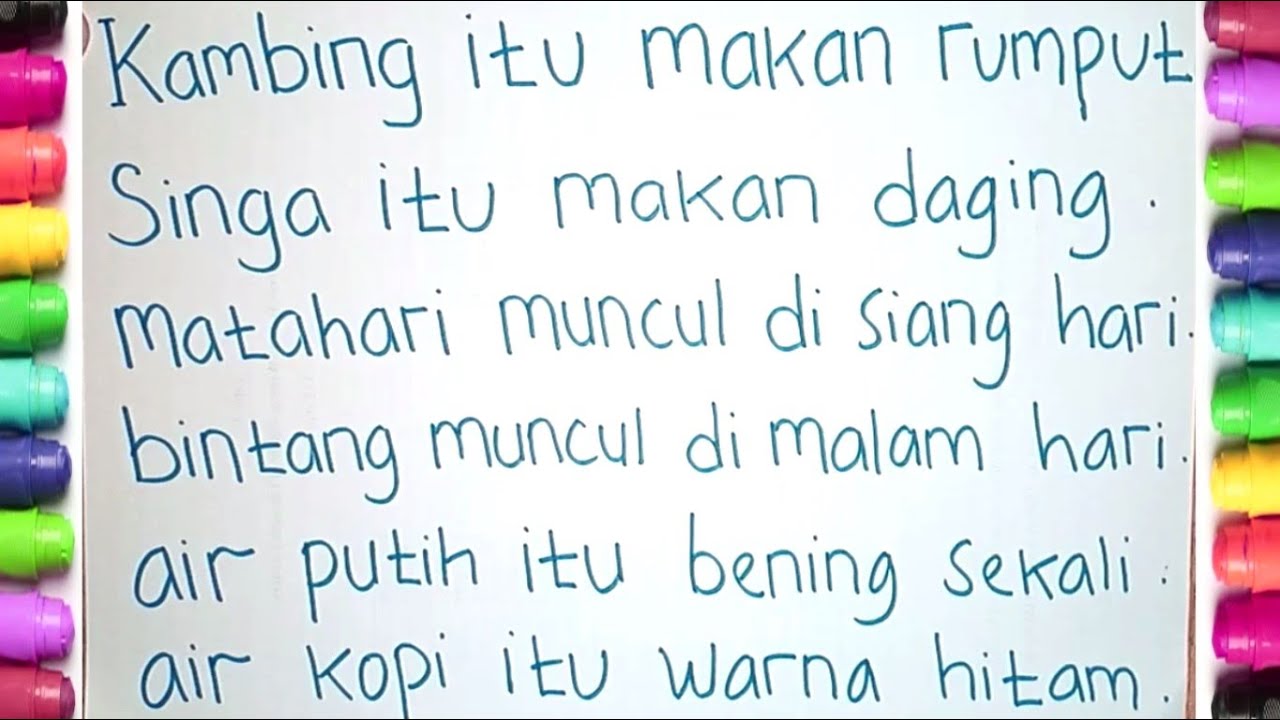 Kambing itu makan rumput
Singa itu makan daging.
matahari muncul di siang hari.
bintang muncul di malam hari.
air putih itu bening sekali.
air kopi itu warna hitam.